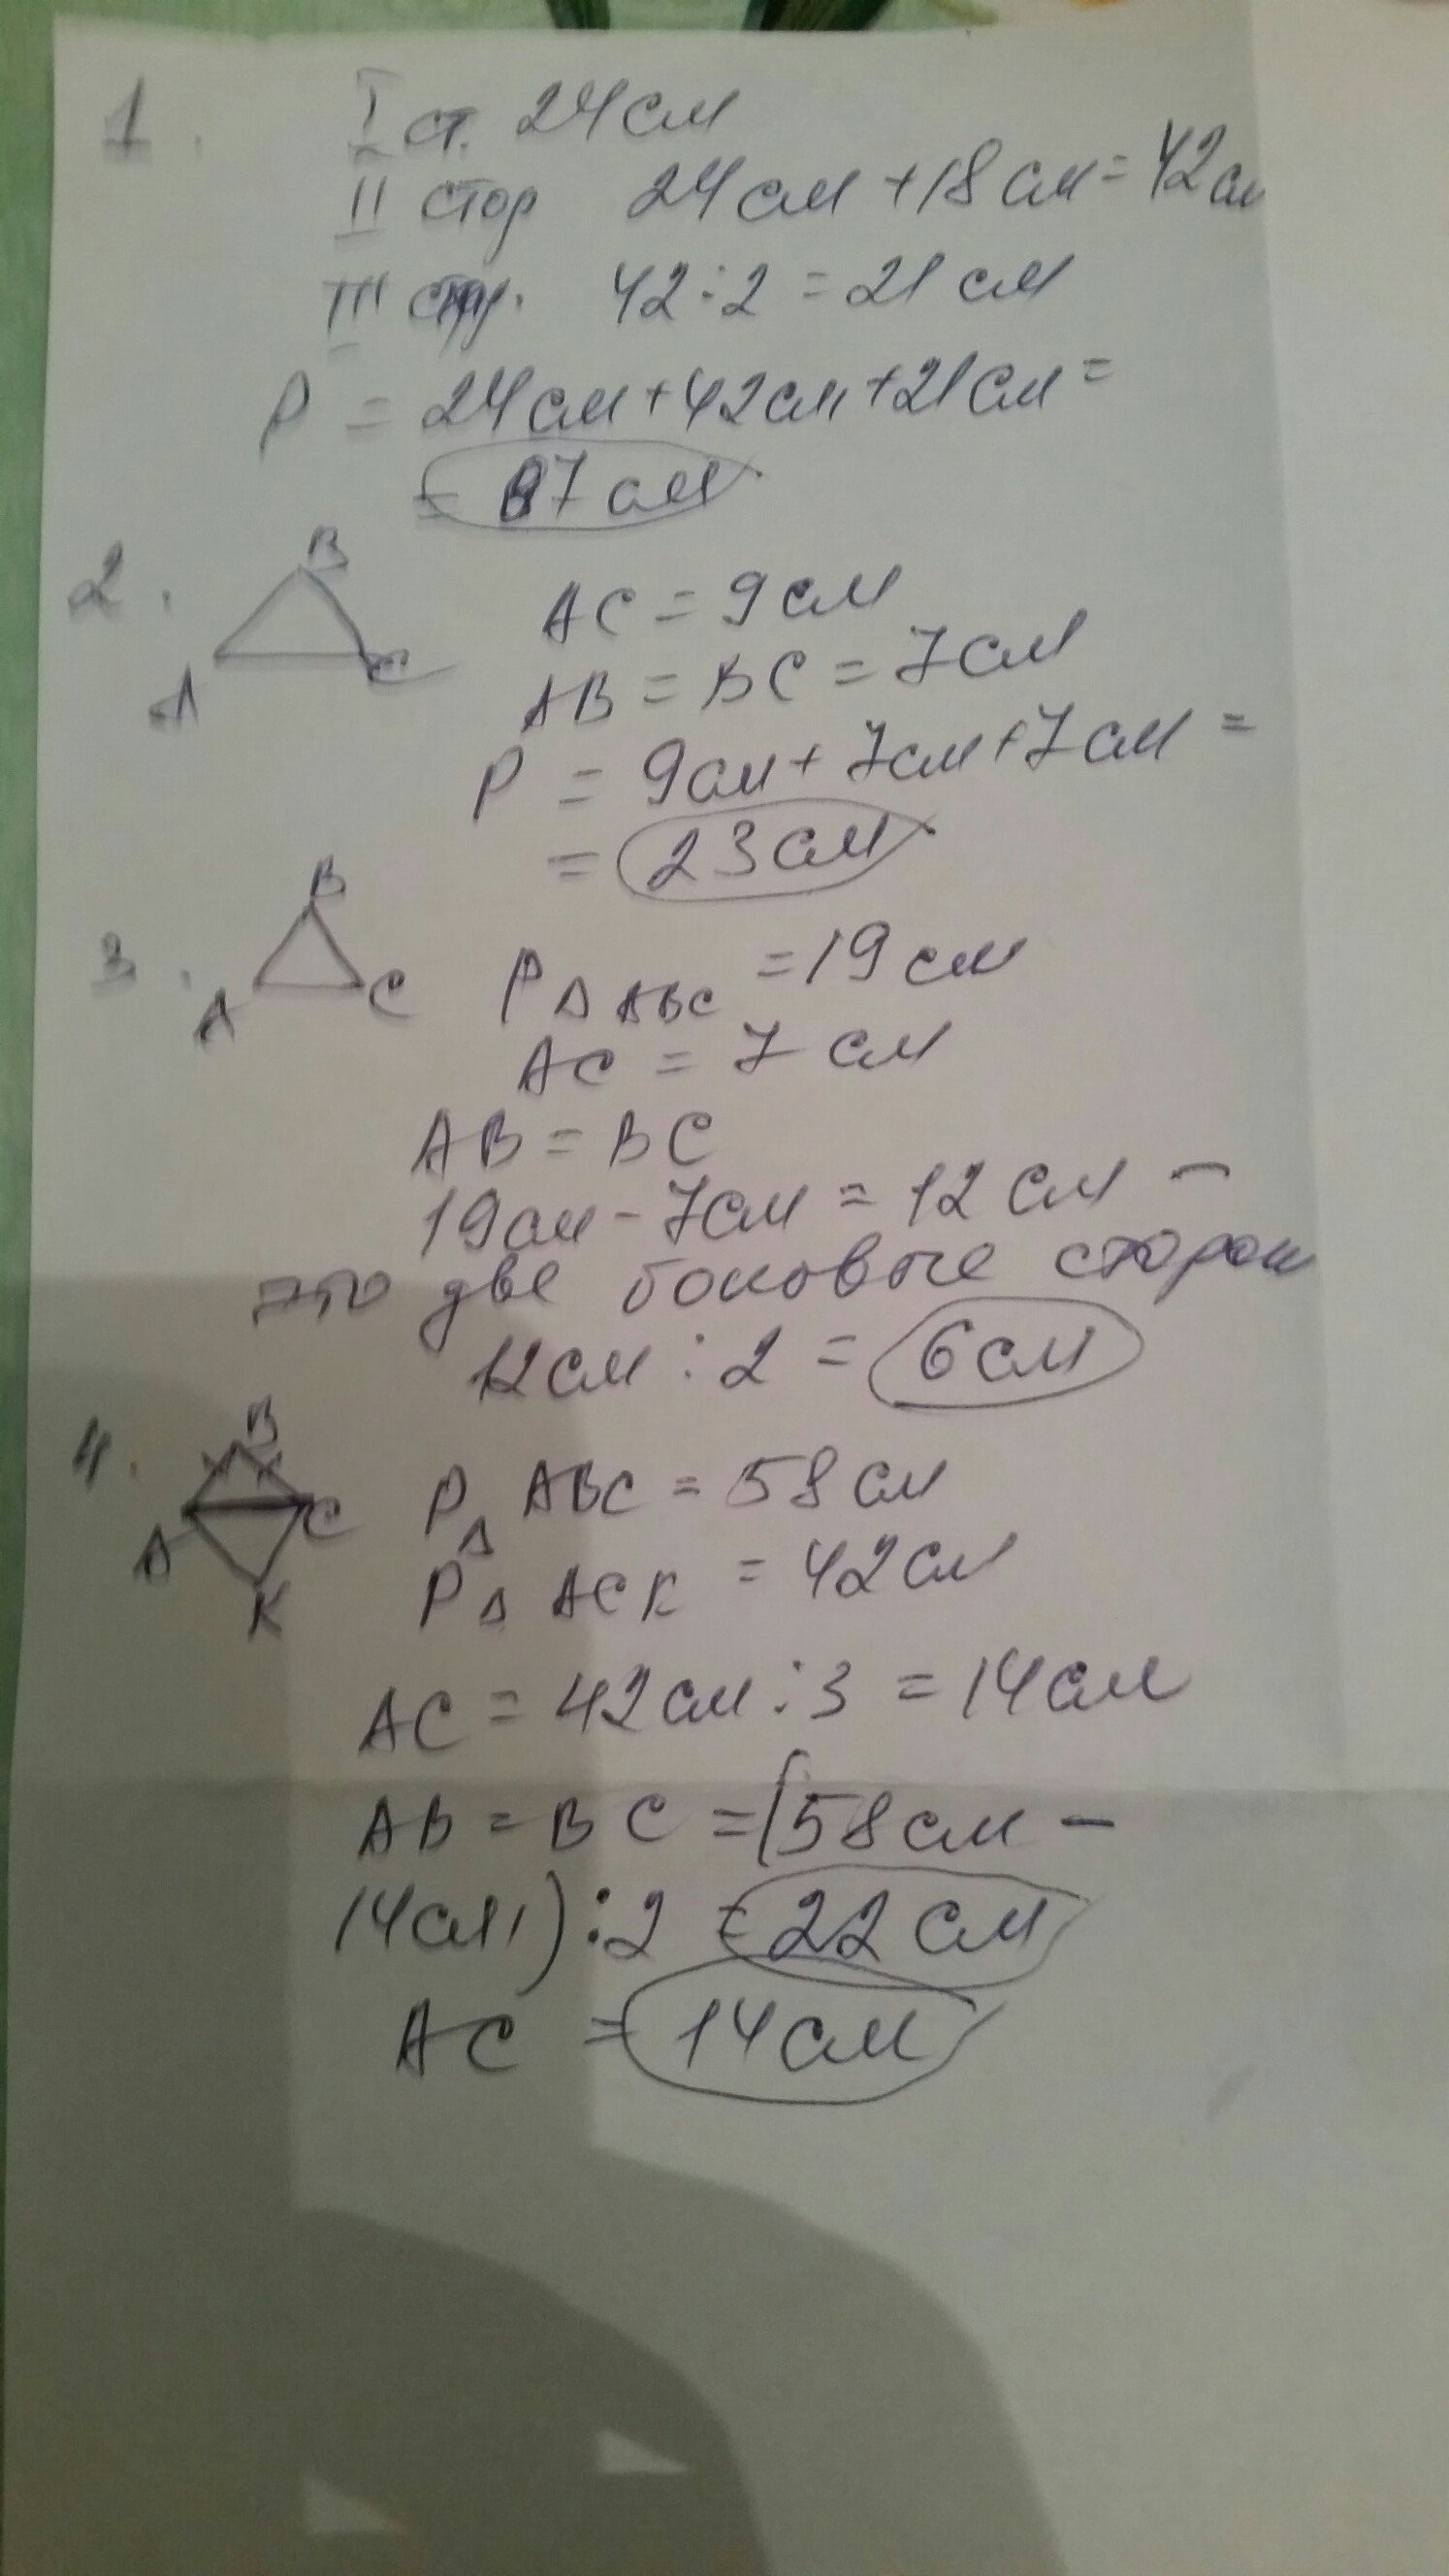 1. I ст. 24 см
II стор 24 см + 18 см = 42 см
III стор. 42 : 2 = 21 см
P = 24 см + 42 см + 21 см =
= 87 см
2. B
A C
AC = 9 см
AB = BC = 7 см
P = 9 см + 7 см + 7 см =
= 23 см
3. B
A C
P Δ ABC = 19 см
AC = 7 см
AB = BC
19 см - 7 см = 12 см –
это две боковые сторон
12 см : 2 = 6 см
4. B
A C
K
P Δ ABC = 58 см
P Δ ACK = 42 см
AC = 42 см : 3 = 14 см
AB = BC = (58 см –
14 см) : 2 = 22 см
AC = 14 см